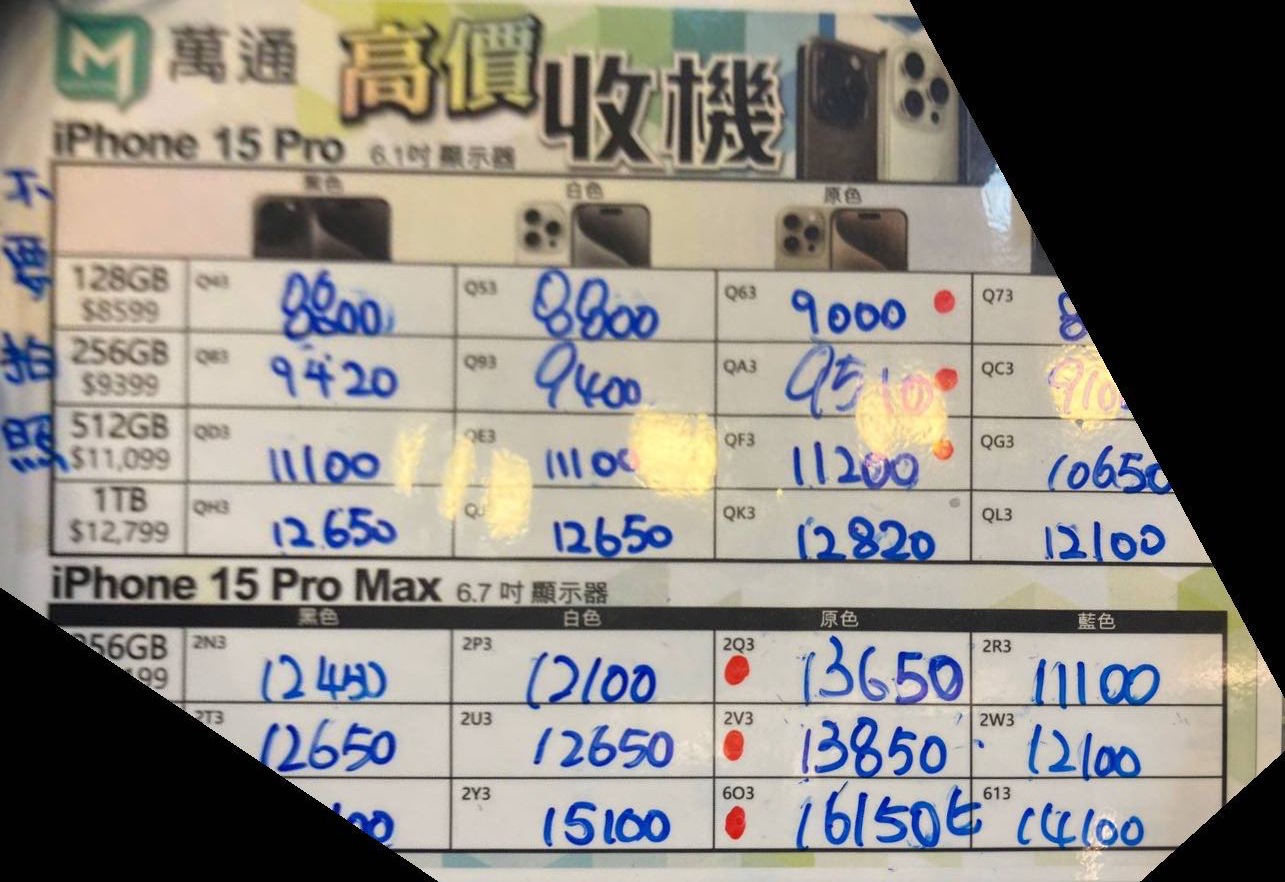 M 萬通 高價收機
iPhone 15 Pro 6.1吋 顯示器
不要拍照
黑色 白色 原色
128GB $8599 Q43 8800 Q53 8800 Q63 9000 Q73
256GB $9399 Q83 9420 Q93 9400 QA3 9510 QC3
512GB $11,099 QD3 11100 QE3 11100 QF3 11200 QG3 10650
1TB $12,799 QH3 12650 12650 QK3 12820 QL3 12100
iPhone 15 Pro Max 6.7吋 顯示器
黑色 白色 原色 藍色
256GB 2N3 2P3 12100 2Q3 13650 2R3 11100
2T3 12650 2U3 12650 2V3 13850 2W3 12100
2Y3 15100 6O3 16150 613 14100